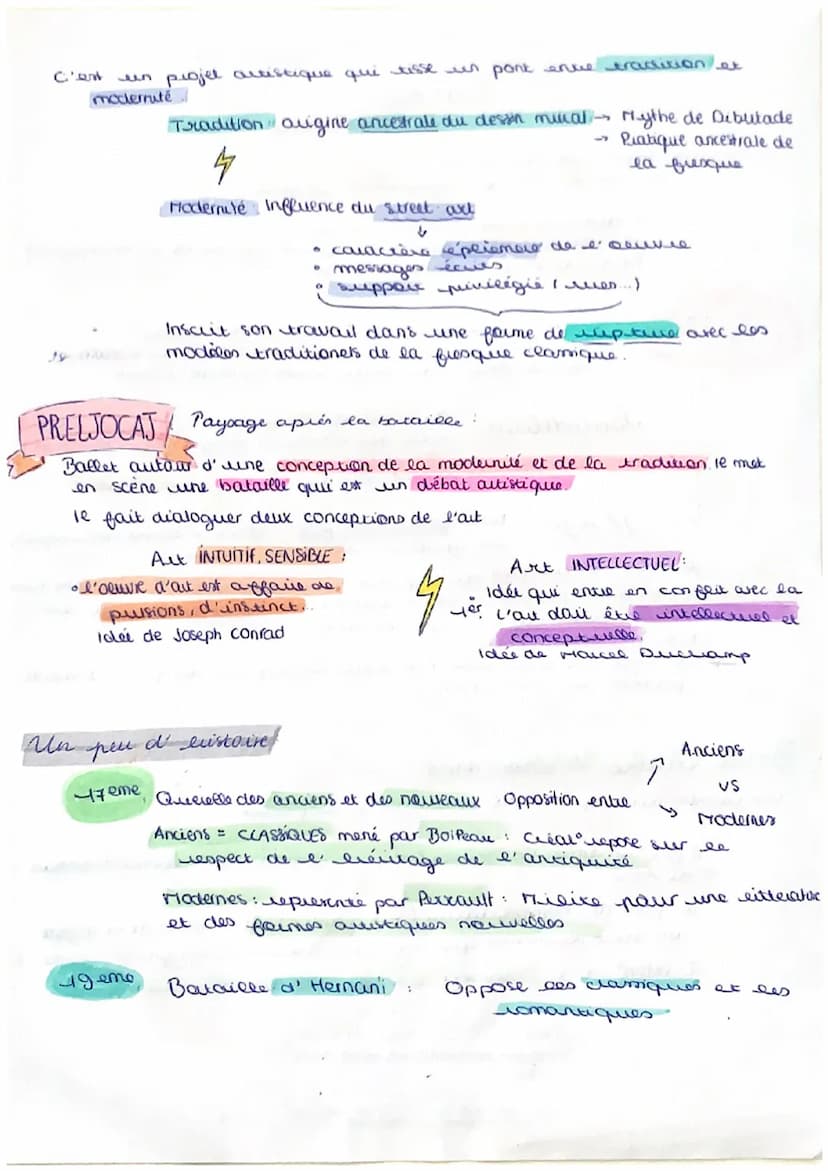 C'est un projet artistique qui tisse un pont entre tradition et
modernité.
Tradition : origine ancestrale du dessin mural → Mythe de Dibutade
→ Pratique ancestrale de
la fresque
Modernité : Influence du street art
↓
• caractère éphémère de l'oeuvre
• messages écrits
• support privilégié (murs...)
Inscrit son travail dans une forme de rupture avec les
modèles traditionels de la fresque classique.
PRELJOCAJ : Paysage après la bataille :
Ballet autour d'une conception de la modernité et de la tradition. Il met
en scène une bataille qui est un débat artistique.
Il fait dialoguer deux conceptions de l'art
Art INTUITIF, SENSIBLE :
• l'oeuvre d'art est affaire de
pulsions, d'instinct...
Idée de Joseph Conrad
Art INTELLECTUEL :
• Idée qui entre en conflit avec la
1er. L'art doit être intellectuel et
conceptuelle.
Idée de Marcel Duchamp
Un peu d'histoire
17eme Querelle des anciens et des nouveaux Opposition entre
↗ Anciens
vs
↘ Modernes
Anciens = CLASSIQUES mené par Boileau : Créat° repose sur le
respect de l'héritage de l'antiquité
Modernes : représenté par Perrault : Milite pour une litteratur
et des formes artistiques nouvelles
19eme Bataille d'Hernani : Oppose les classiques et les
romantiques